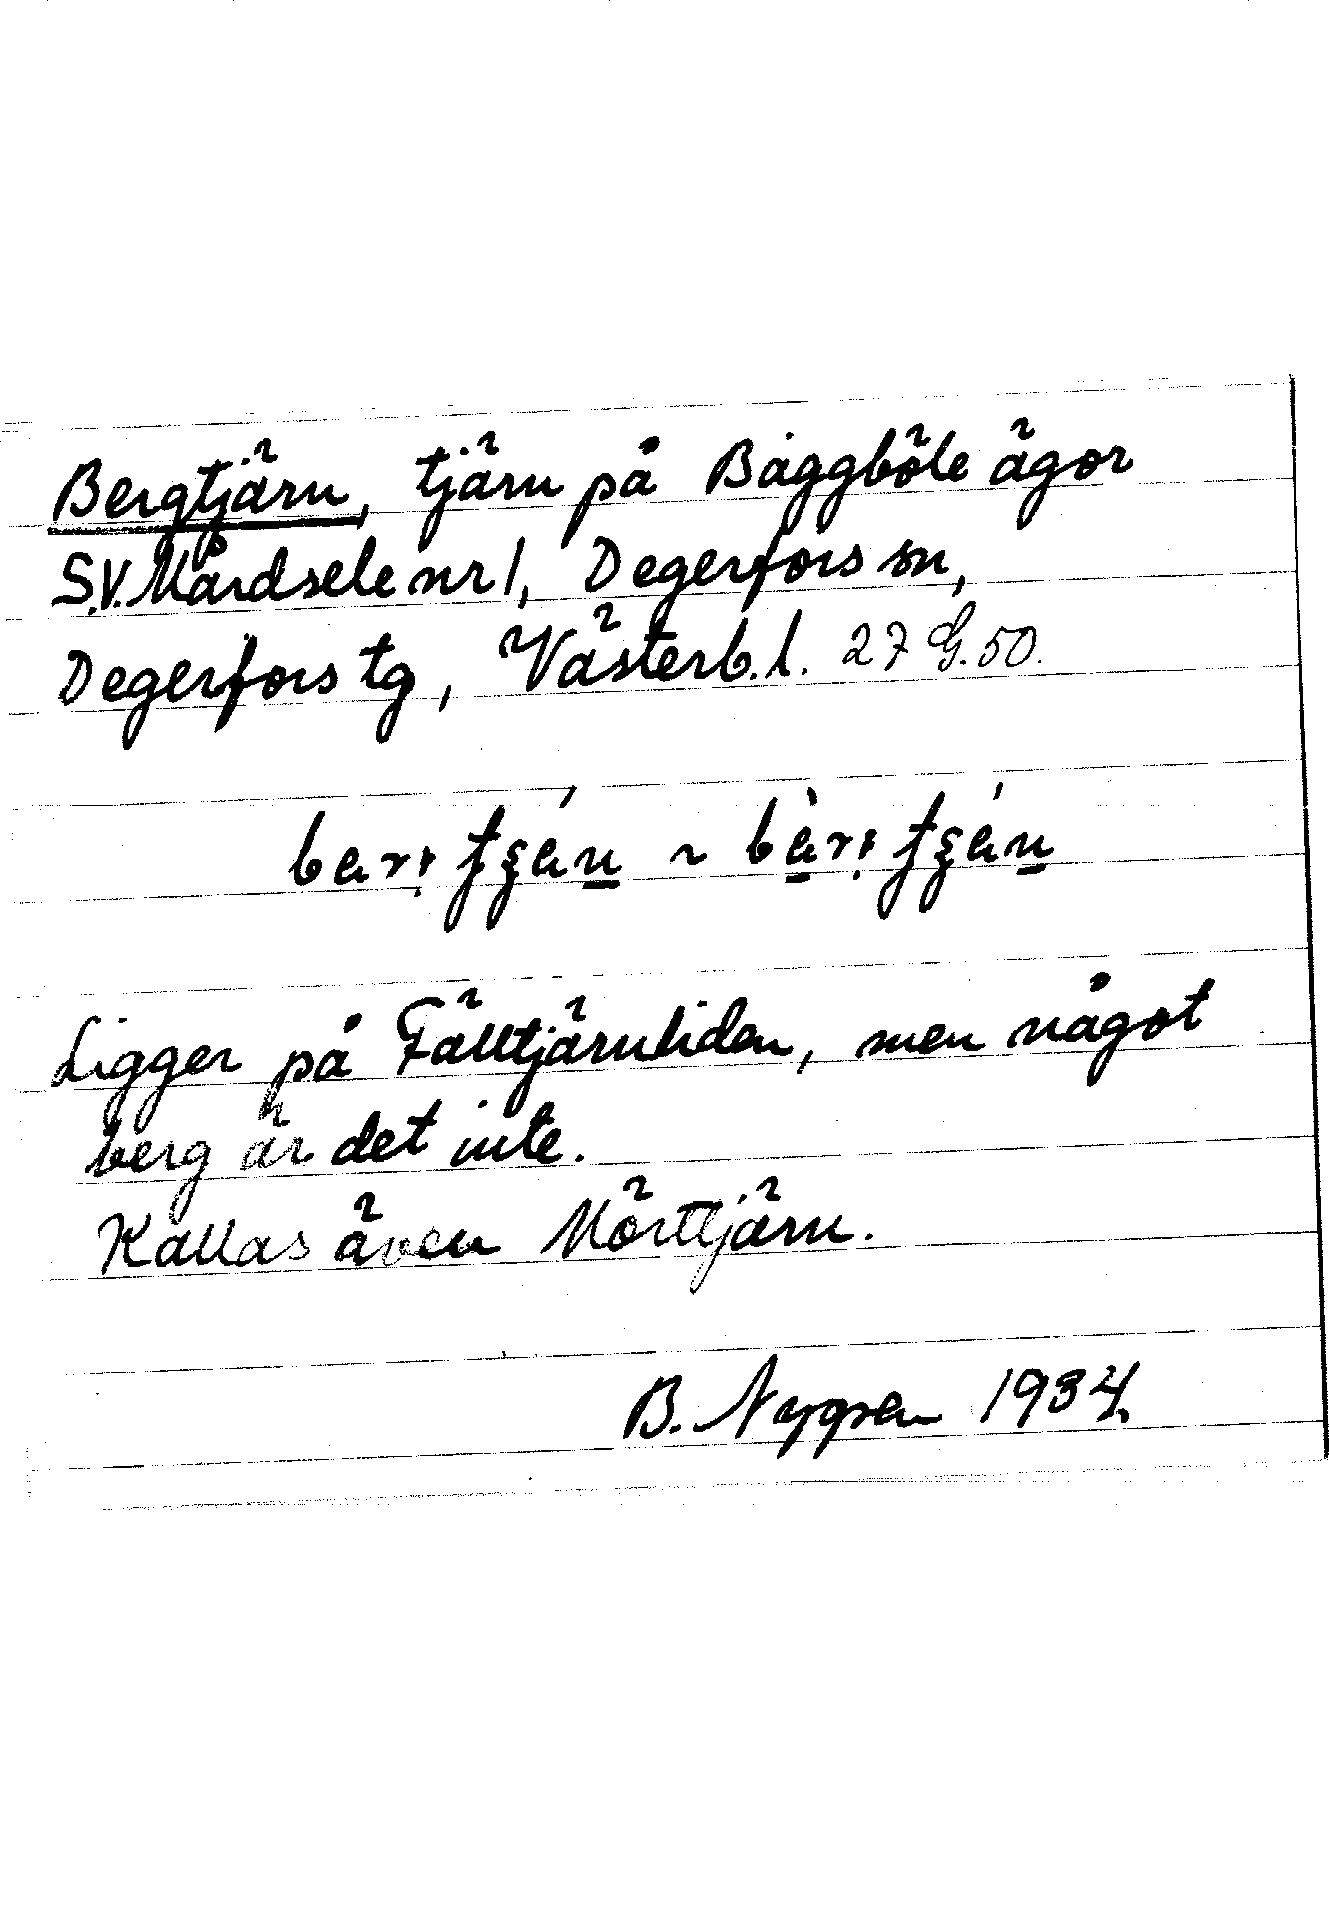 Bergtjärn, tjärn på Baggböle ägor
S.V. Mårdsele nr 1, Degerfors sn,
Degerfors tg, Västerb. l. 27 G. 50.
Ligger på Fälltjärnliden, men något
berg är det inte.
Kallas även Mörttjärn.
B. Nygren 1934